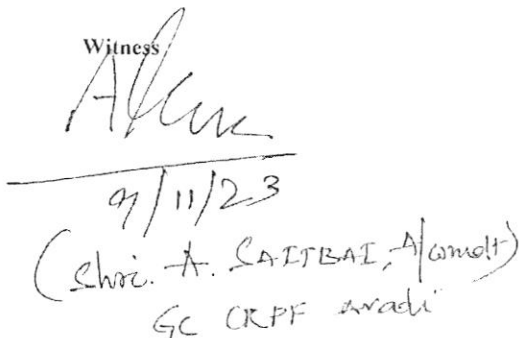 Witness
9/11/23
(Shri. A. SAITBAI, A/Comdt)
GC CRPF Avadi